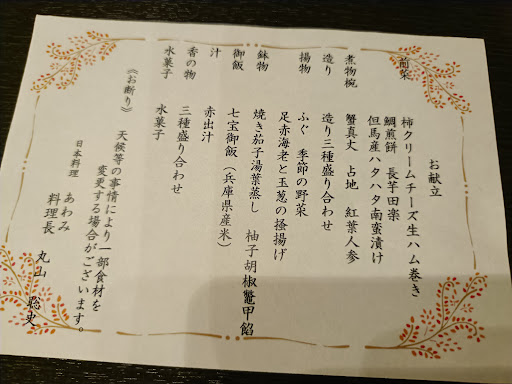 お献立
前菜 柿クリームチーズ生ハム巻き
鯛煎餅 長芋田楽
但馬産ハタハタ南蛮漬け
煮物椀 蟹真丈 占地 紅葉人参
造り 造り三種盛り合わせ
揚物 ふぐ 季節の野菜
足赤海老と玉葱の掻揚げ
鉢物 焼き茄子湯葉蒸し 柚子胡椒鼈甲餡
御飯 七宝御飯（兵庫県産米）
汁 赤出汁
香の物 三種盛り合わせ
水菓子 水菓子
《お断り》 天候等の事情により一部食材を
変更する場合がございます。
日本料理 あわみ
料理長 丸山 聡史